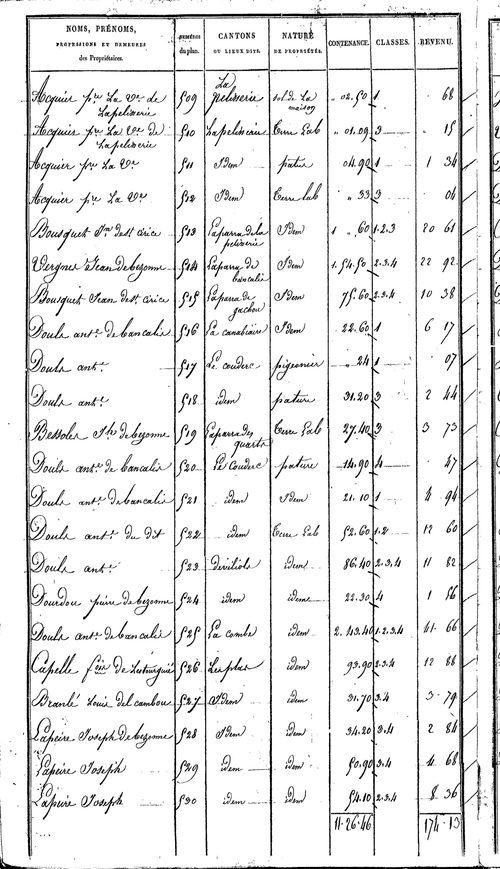 NOMS, PRÉNOMS, PROFESSIONS ET DEMEURES des Propriétaires. NUMÉROS du plan. CANTONS OU LIEUX DITS. NATURE DE PROPRIÉTÉS. CONTENANCE. CLASSES. REVENU.
Acquier pre La Ve de Lapelisserie 509 La pelisserie sol de La maison " 02.50 1 " 68
Acquier pre La Ve de Lapelisserie 510 Lapelisserie Terre Lab " 01.09 3 " 15
Acquier pre La Ve 511 Idem patur 04.92 1 1 34
Acquier pre La Ve 512 Idem Terre lab " 33 3 04
Bousquet de st Cirice 513 Laparra de la pelisserie Idem 1 " 60 1.2.3 20 61
Vergnes Jean de bezonne 514 Laparra de bancalis Idem 1.54.50 2.3.4 22 92
Bousquet Jean de st Cirice 515 Laparra de gachou Idem 75.60 2.3.4 10 38
Douls ant. de bancalis 516 La canabiaire Idem 22.60 1 6 17
Douls ant. 517 Le couderc pigeonier " 24 1 " 07
Douls ant. 518 idem pature 31.20 3 2 44
Bessoles de bezonne 519 Laparra des quarts Terre Lab 27.40 3 3 73
Douls ant. de bancalis 520 Le Couderc pature 14.90 4 " 47
Douls ant. de bancalis 521 idem Idem 21.10 1 4 94
Douls ant. du dit 522 idem Terre Lab 52.60 1.2 12 60
Douls ant. 523 deviliols idem 86.40 2.3.4 11 82
Dourdou pierre de bezonne 524 idem idem 22.30 4 1 56
Douls ant. de bancalis 525 La combe idem 2.43.40 1.2.3.4 41 66
Capelle de 526 Les plas idem 93.90 2.3.4 12 88
Branlé Louis del cambou 527 Idem idem 31.70 3.4 3 79
Lapeire Joseph de bezonne 528 Idem idem 34.20 3.4 2 84
Lapeire Joseph 529 idem idem 50.90 3.4 4 68
Lapeire Joseph 530 idem idem 54.10 2.3.4 8 36
11.26.46 174.13